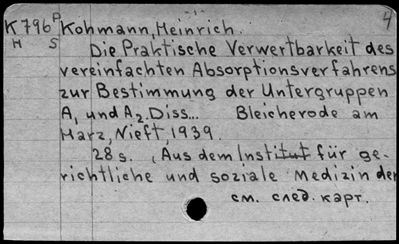 K796 P Kohmann, Heinrich. 4
H S
Die Praktische Verwertbarkeit des
vereinfachten Absorptionsverfahrens
zur Bestimmung der Untergruppen
A₁ und A₂. Diss... Bleicherode am
Harz, Nieft, 1939.
28 s. (Aus dem Institut für ge-
richtliche und soziale Medizin der
см. след. карт.